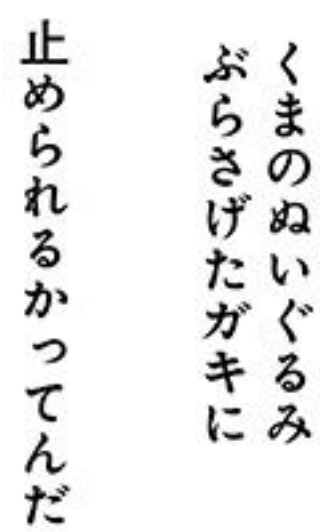 くまのぬいぐるみ
ぶらさげたガキに
止められるかってんだ